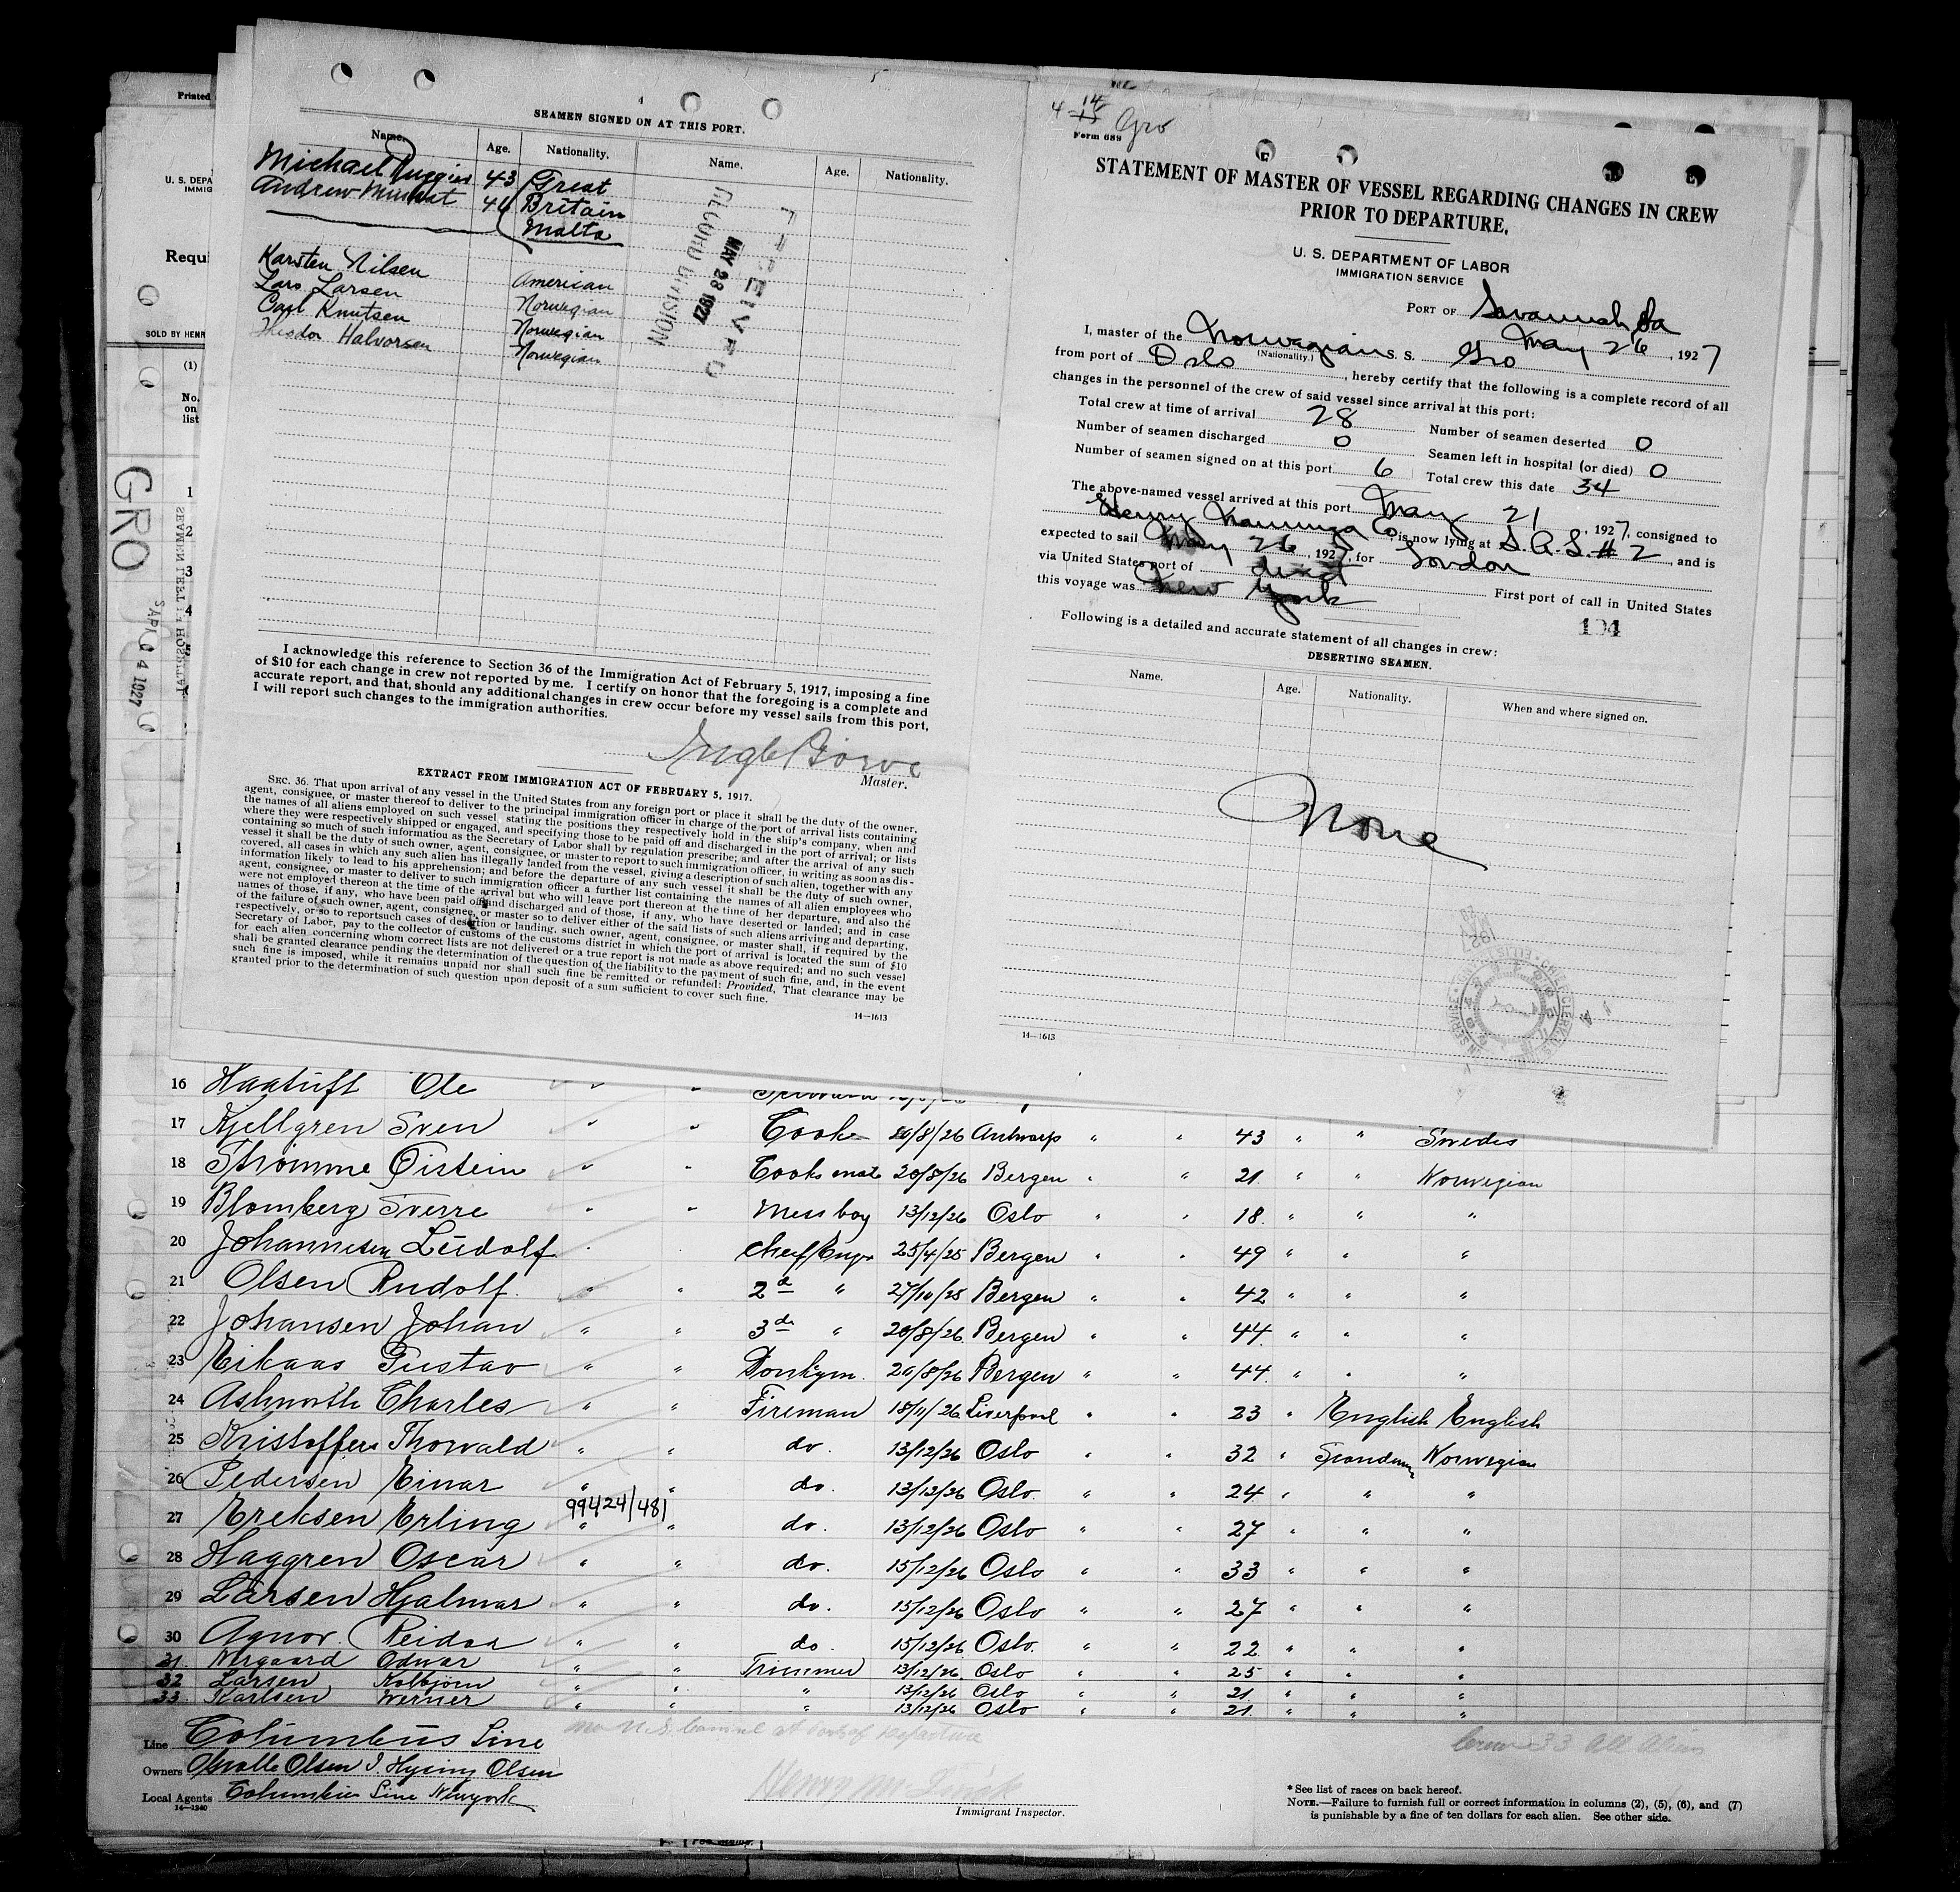 Printed
U. S. DEPA
IMMIG
Requi
SOLD BY HENR
(1)
No.
on
list
GRO
APR 4 1927
1
2
3
4
SEAMEN SIGNED ON AT THIS PORT.
Name. Age. Nationality. Name. Age. Nationality.
Michael 43 Great
Andrew 46 Britain
Malta
Karsten Nilsen American
Lars Larsen Norwegian
Carl Knutsen Norwegian
Theodor Halvorsen Norwegian
RECEIVED
MAY 28 1927
RECORD DIVISION
I acknowledge this reference to Section 36 of the Immigration Act of February 5, 1917, imposing a fine
of $10 for each change in crew not reported by me. I certify on honor that the foregoing is a complete and
accurate report, and that, should any additional changes in crew occur before my vessel sails from this port,
I will report such changes to the immigration authorities.
Master.
EXTRACT FROM IMMIGRATION ACT OF FEBRUARY 5, 1917.
SEC. 36. That upon arrival of any vessel in the United States from any foreign port or place it shall be the duty of the owner,
agent, consignee, or master thereof to deliver to the principal immigration officer in charge of the port of arrival lists containing
the names of all aliens employed on such vessel, stating the positions they respectively hold in the ship's company, when and
where they were respectively shipped or engaged, and specifying those to be paid off and discharged in the port of arrival; or lists
containing so much of such information as the Secretary of Labor shall by regulation prescribe; and after the arrival of any such
vessel it shall be the duty of such owner, agent, consignee, or master to report to such immigration officer, in writing as soon as dis-
covered, all cases in which any such alien has illegally landed from the vessel, giving a description of such alien, together with any
information likely to lead to his apprehension; and before the departure of any such vessel it shall be the duty of such owner,
agent, consignee, or master to deliver to such immigration officer a further list containing the names of all alien employees who
were not employed thereon at the time of the arrival but who will leave port thereon at the time of her departure, and also the
names of those, if any, who have been paid off and discharged and of those, if any, who have deserted or landed; and in case
of the failure of such owner, agent, consignee, or master so to deliver either of the said lists of such aliens arriving and departing,
respectively, or so to report such cases of desertion or landing, such owner, agent, consignee, or master shall, if required by the
Secretary of Labor, pay to the collector of customs of the customs district in which the port of arrival is located the sum of $10
for each alien concerning whom correct lists are not delivered or a true report is not made as above required; and no such vessel
shall be granted clearance pending the determination of the question of the liability to the payment of such fine, and, in the event
such fine is imposed, while it remains unpaid nor shall such fine be remitted or refunded: Provided, That clearance may be
granted prior to the determination of such question upon deposit of a sum sufficient to cover such fine.
14—1613
Gro
Form 689
STATEMENT OF MASTER OF VESSEL REGARDING CHANGES IN CREW
PRIOR TO DEPARTURE.
U. S. DEPARTMENT OF LABOR
IMMIGRATION SERVICE
PORT OF Savannah Ga
May 26, 1927
I, master of the Norwegian S. S. Gro
(Nationality.)
from port of Oslo, hereby certify that the following is a complete record of all
changes in the personnel of the crew of said vessel since arrival at this port:
Total crew at time of arrival 28 Number of seamen deserted 0
Number of seamen discharged 0 Seamen left in hospital (or died) 0
Number of seamen signed on at this port 6 Total crew this date 34
The above-named vessel arrived at this port May 21, 1927, consigned to
Henry Co, is now lying at S. A. L # 2, and is
expected to sail May 26, 1927, for London
via United States port of direct First port of call in United States
this voyage was New York
194
Following is a detailed and accurate statement of all changes in crew:
DESERTING SEAMEN.
Name. Age. Nationality. When and where signed on.
None
14—1613
16 Ole
17 Kjellgren Sven " " Cook 20/8/26 Antwerp " " 43 " " Swedis
18 Strømme Øistein " " Cooks mate 20/8/26 Bergen " " 21 " " Norwegian
19 Blomberg Sverre " " Mess boy 13/12/26 Oslo " " 18 " " "
20 Johannesen Ludolf " " Chief Engr 25/4/25 Bergen " " 49 " " "
21 Olsen Rudolf " " 2d " 27/10/25 Bergen " " 42 " " "
22 Johansen Johan " " 3d " 20/8/26 Bergen " " 44 " " "
23 Eikaas Gustav " " Donkym. 20/8/26 Bergen " " 44 " " "
24 Ashworth Charles " " Fireman 18/11/26 Liverpool " " 23 " English English
25 Kristoffers Thorvald " " do. 13/12/26 Oslo " " 32 " Norwegian
26 Pedersen Einar " " do. 13/12/26 Oslo " " 24 " " "
99424/481
27 Ereksen Erling " " do. 13/12/26 Oslo " " 27 " " "
28 Haggren Oscar " " do. 15/12/26 Oslo " " 33 " " "
29 Larsen Hjalmar " " do. 15/12/26 Oslo " " 27 " " "
30 Agnor Reidar " " do. 15/12/26 Oslo " " 22 " " "
31 Nergaard Odvar " " Trimmer 13/12/26 Oslo " " 25 " " "
32 Larsen Kolbjörn " " " 13/12/26 Oslo " " 21 " " "
33 Karlsen Werner " " " 13/12/26 Oslo " " 21 " " "
no U.S. Consul at Port of Departure
Crew 33 All Aliens
Line Columbus Line
Owners Olsen Olsen
Local Agents Columbus Line Newyork
14—1240
Immigrant Inspector.
* See list of races on back hereof.
NOTE.—Failure to furnish full or correct information in columns (2), (5), (6), and (7)
is punishable by a fine of ten dollars for each alien. See other side.